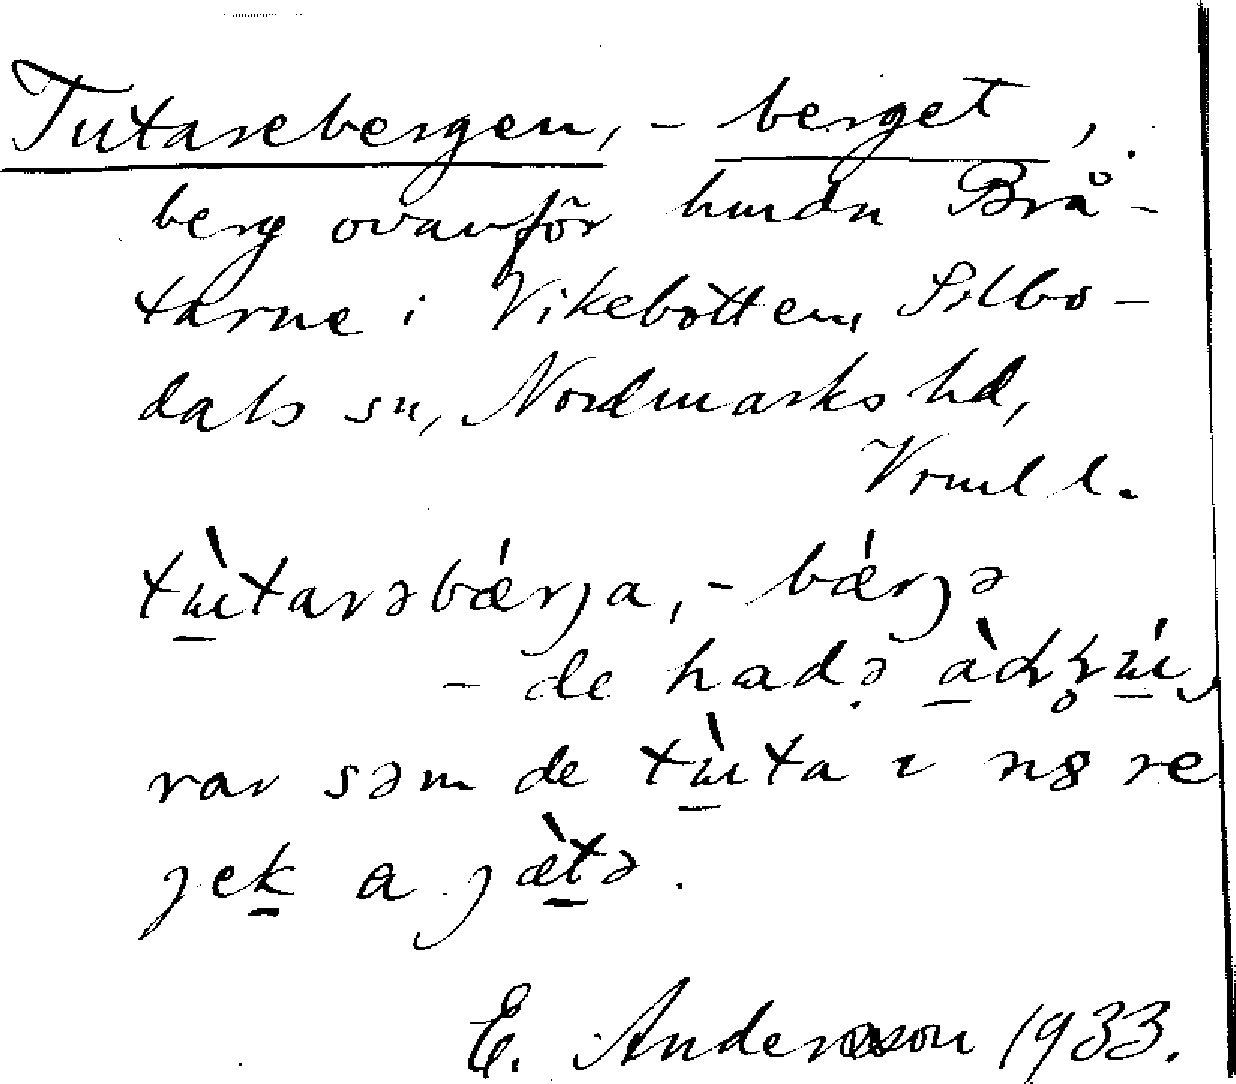 Tutarebergen, - berget,
berg ovanför hmdn Brå-
tarne i Vikebotten, Silbo-
dals sn, Nordmarks hd,
Vrml l.
tɯ̀tarəbǽrja, - bǽrjə
- de hadə
var səm de tɯ̀ta ı re
jek a jæ̀tə.
E. Andersson 1933.